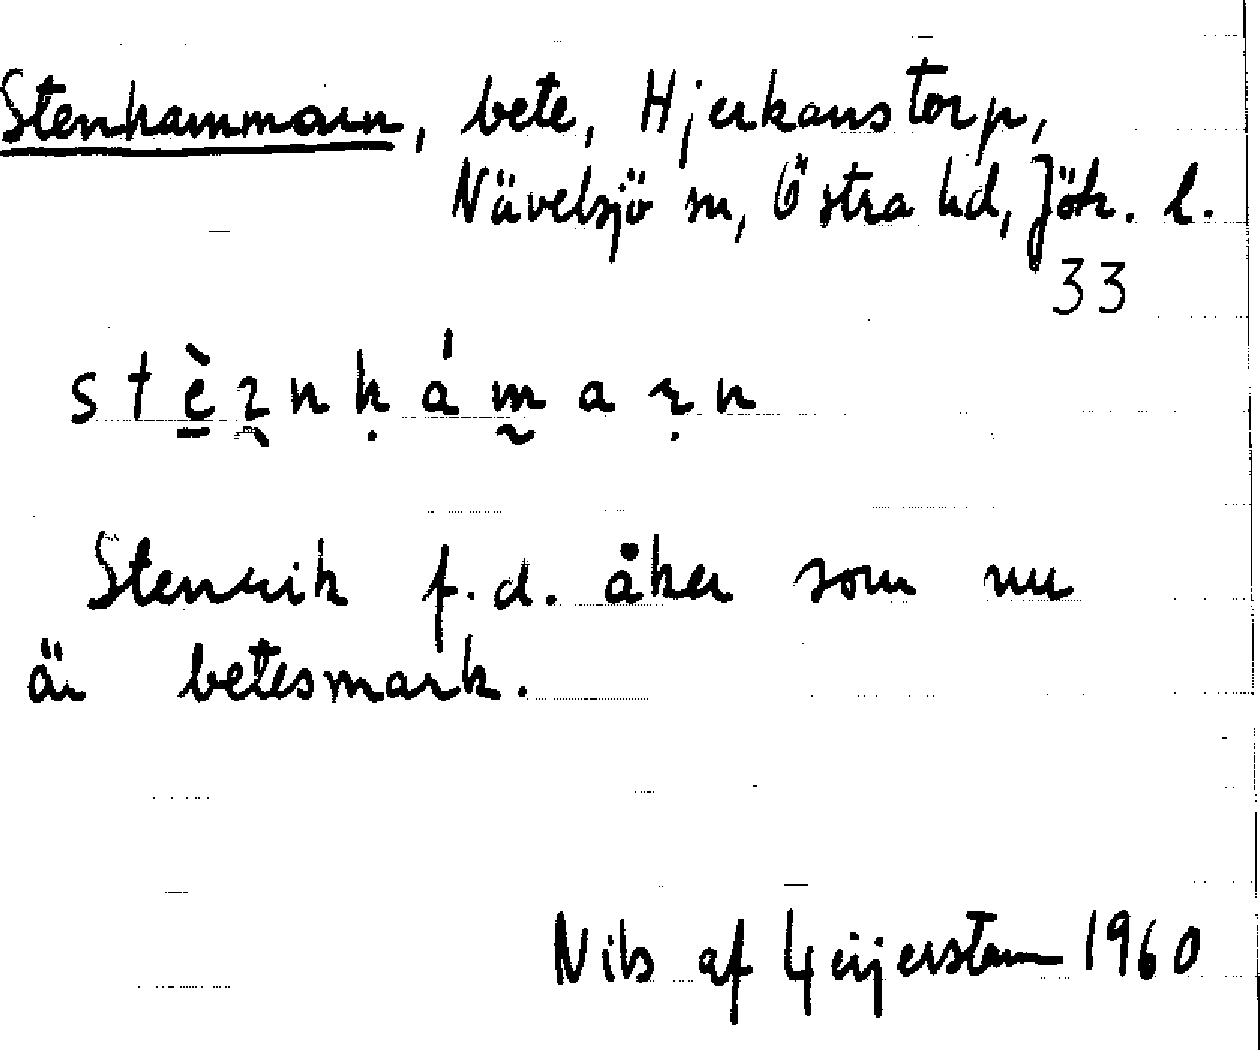 Stenhammarn, bete, Hjerkanstorp,
Nävelsjö sn, Östra hd, Jök. l.
33
Stenrik f.d. åker som nu
är betesmark.
Nils af Geijerstam 1960